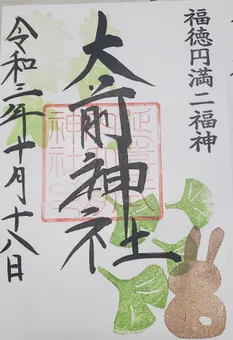 福徳円満二福神
大前神社
令和三年十月十八日